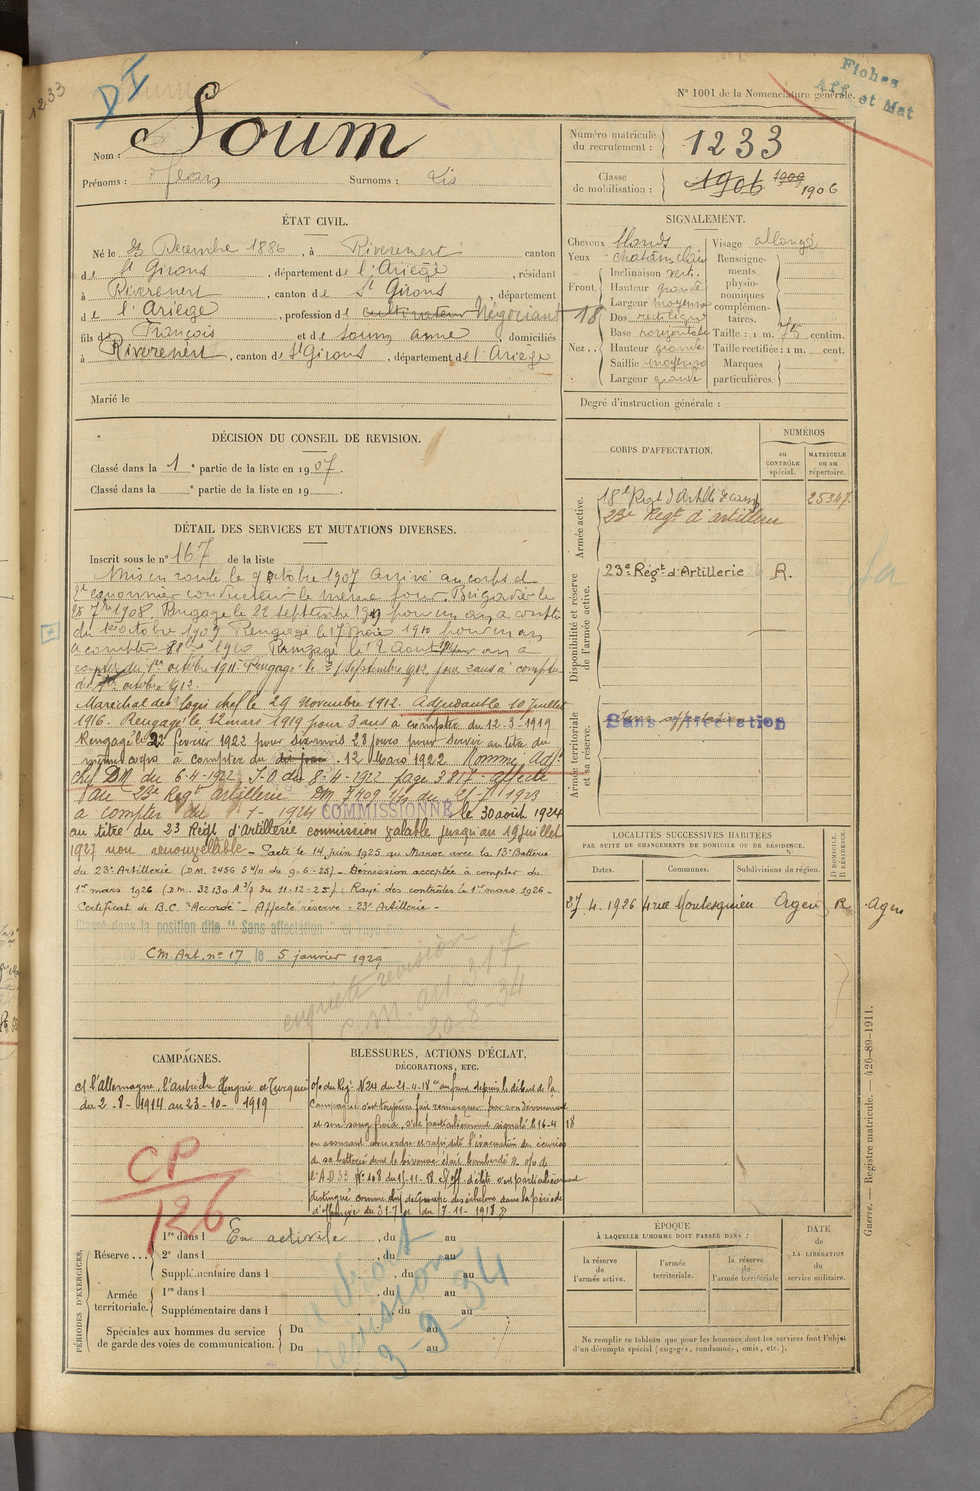 1233
DI
N° 1001 de la Nomenclature générale.
Fiches
Aff. et Mat
Nom : Soum
Prénoms : Jean Surnoms : Lis
Numéro matricule du recrutement : 1233
Classe de mobilisation : 1906 1909 1906
ÉTAT CIVIL.
Né le 23 Décembre 1886, à Riverenert canton
de St Girons, département de l'Ariège, résidant
à Riverenert, canton de St Girons, département
de l'Ariège, profession de cultivateur Négociant
fils de François et de Soum Anne, domiciliés
à Riverenert, canton de St Girons, département de l'Ariège
Marié le
SIGNALEMENT.
Cheveux blonds
Yeux chatain clair
Front. Inclinaison vert.
Hauteur grande
Largeur moyenne
Nez.. Dos rectiligne
Base horizontale
Hauteur grande
Saillie moyenne
Largeur grande
18
Visage allongé
Renseignements physionomiques complémentaires.
Taille : 1 m. 75 centim.
Taille rectifiée : 1 m. cent.
Marques particulières.
Degré d'instruction générale :
DÉCISION DU CONSEIL DE REVISION.
Classé dans la 1e partie de la liste en 1907.
Classé dans la e partie de la liste en 19
DÉTAIL DES SERVICES ET MUTATIONS DIVERSES.
Inscrit sous le n° 167 de la liste
Mis en route le 9 octobre 1907 Arrivé au corps et
2e canonnier conducteur le même jour. Brigadier le
25 7bre 1908. Rengagé le 22 septembre 1909 pour un an à compter
du 1er octobre 1909 Rengagé le 17 1910 pour un an
à compter 1910 Rengagé le 12 Août 1911 pour un an à
compter du 1er octobre 1911. Rengagé le septembre 1912 pour 2 ans à compter
du 1er octobre 1912.
Maréchal des logis chef le 29 Novembre 1912. Adjudant le 10 juillet
1916. Rengagé le 12 mars 1919 pour 3 ans à compter du 12-3-1919
Rengagé le 22 février 1922 pour dix mois 28 jours pour servir au titre du
même corps à compter du 12 Mars 1922 Nommé Adjt
chef DM du 6-4-1922 J.O du 8-4-1922 page 3817 affecté
au 23e Regt artillerie DM 7409 du 21-7-1923
à compter du 1-1924 COMMISSIONNÉ le 30 août 1924
au titre du 23 Régt d'Artillerie commission valable jusqu'au 19 juillet
1927 non renouvellable - Parti le 14 juin 1925 au Maroc avec la 13e Batterie
du 23e Artillerie (DM. 2456 S 4/11 du 9-6-25) - Démission acceptée à compter du
1er mars 1926 (DM. 32130 A 3/3 du 11-12-25) : Rayé des contrôles le 1er mars 1926 -
Certificat de B.C. "Accordé" - Affecté réserve : 23e Artillerie -
Classé dans la position dite "Sans affectation"
CM. Art. n° 17 le 5 janvier 1929
enquête revision
C.M. Art 317
20-8-34
CORPS D'AFFECTATION.
NUMÉROS
DU CONTRÔLE spécial.
MATRICULE ou au répertoire.
Armée active.
18e Régt d'Artillie de camp 25347
23e Régt d'artillerie
Disponibilité et réserve de l'armée active.
23e Régt d'Artillerie R.
Armée territoriale et sa réserve.
Sans affectation
LOCALITÉS SUCCESSIVES HABITÉES
PAR SUITE DE CHANGEMENTS DE DOMICILE OU DE RÉSIDENCE.
Dates. Communes. Subdivisions de région. D DOMICILE. R RÉSIDENCE.
27.4.1926 4 rue Montesquieu Agen R Agen
CAMPAGNES.
c/ l'Allemagne, l'autriche Hongrie et Turquie
du 2-8-1914 au 23-10-1919
CP
126
BLESSURES, ACTIONS D'ÉCLAT,
DÉCORATIONS, ETC.
o/o du Régt N°24 du 21-4-18 au front depuis le début de la
campagne s'est toujours fait remarquer par son dévouement
et son sang froid, s'est particulièrement signalé le 16-4-18
en assurant avec ordre et rapidité l'évacuation des écuries
de sa batterie dont le bivouac était bombardé ». o/o de
l'A.D 33 N° 108 du 15-11-18 s/off. d'élite s'est particulièrement
distingué comme chef de groupe des échelons dans la période
d'offensive du 31-7 au 7-11-1918 »
PÉRIODES D'EXERCICES.
Réserve... 1re dans l En activité, du au
2e dans l, du au
Supplémentaire dans l, du au
Armée territoriale. 1re dans l, du au
Supplémentaire dans l, du au
Spéciales aux hommes du service de garde des voies de communication. Du au
Du au
revision
3-9-34
ÉPOQUE
À LAQUELLE L'HOMME DOIT PASSER DANS :
la réserve de l'armée active.
l'armée territoriale.
la réserve de l'armée territoriale
DATE DE LA LIBÉRATION du service militaire.
Ne remplir ce tableau que pour les hommes dont les services font l'objet
d'un décompte spécial (engagés, condamnés, omis, etc.).
Guerre. — Registre matricule. — 426-89-1911.